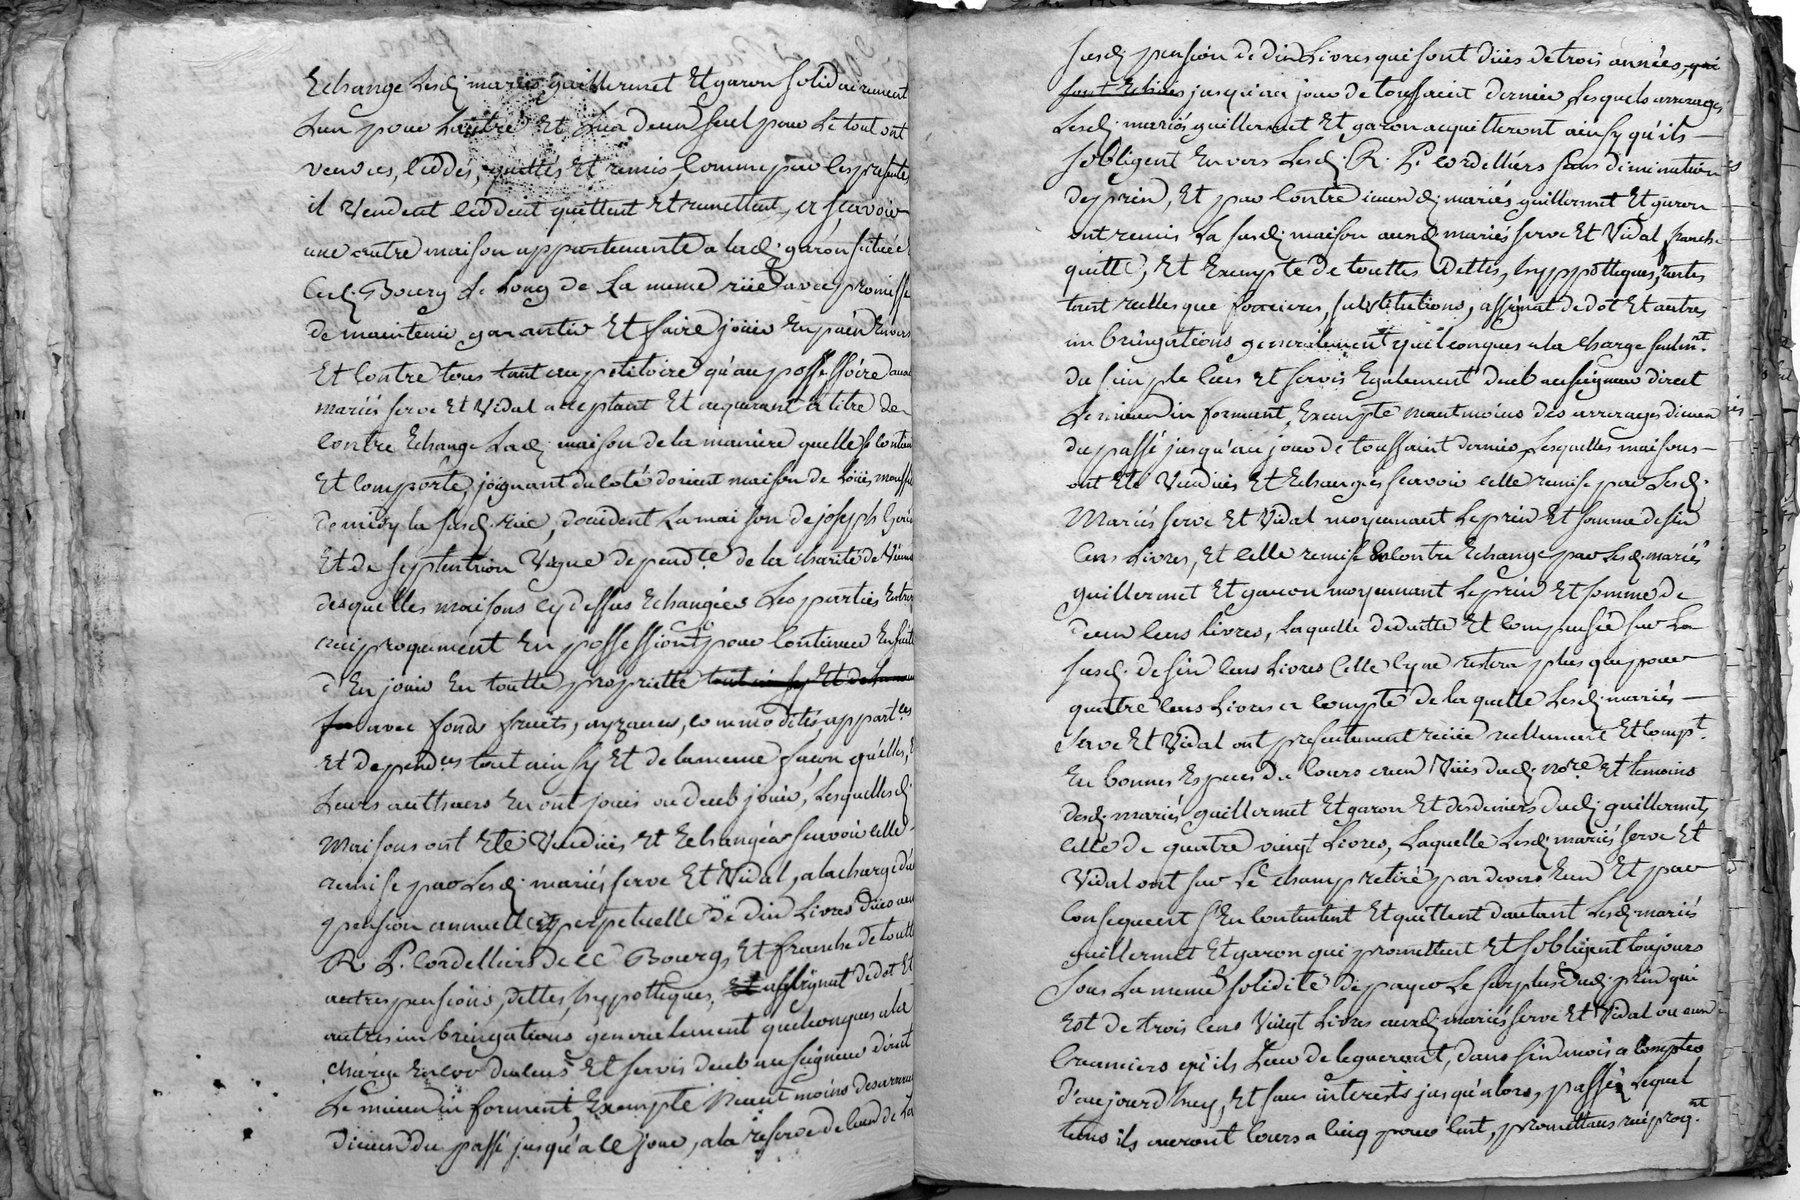 Echange Lesd. mariés guillermet Et garon solidairement
L'un pour L'autre Et L'un d'eux seul pour Le tout ont
vendus, ceddés, quittés Et remis, Comme par les presentes
il Vendent ceddent quittent Et remettent, sçavoir
une autre maison appartenante a lad. garon située
aud. Bourg Le Long de La meme rüe avec promesse
de maintenir garantir Et faire joüir En paix Envers
Et Contre tous tant au petitoire qu'au possessoire auxd.
mariés serve Et Vidal acceptant Et acquerant a titre de
contre Echange Lad. maison de la maniere quelle se contient
Et comporte, joignant du coté d'orient maison de Loüis
de midy la susd. rüe, d'occident La maison de joseph
Et de septentrion Vigne depend.te de la charité de Vienne
desquelles maisons cy dessus Echangées Les parties Entrent
reciproquement En possession pour Continuer Ensuite
d'En jouir En toutte proprietté tout ainsy Et de la meme
fa avec fonds fruits, ayzances, commodités, appart.ces
Et depend.ces tout ainsy Et de la meme façon qu'elles, Et
Leurs autheurs En ont jouis ou deub jouir, Lesquelles d.
Maisons ont Eté Vendües Et Echangées sçavoir celle
remise par Lesd. mariés serve Et Vidal, a la charge d'une
pension annuelle Et perpetuelle de dix Livres düe aux
R. P. Cordelliers de ce Bourg, Et franche de toutte
autres pensions, dettes, hypotheques, Et assignat de dot Et
autres imbringations generalement quelconques a la
charge Encor du cens Et servis deub au seigneur direct
Le mieux in formant, Exempte Neant moins des arrerages
d'iceux du passé jusqu'a ce jour, a la reserve de ceux de La
susd. pension de dix Livres qui sont düés de trois années, qui
sont Echües jusqu'au jour de toussaint dernier, Lesquels arrerages
Lesd. mariés guillermet Et garon acquitteront ainsy qu'ils
s'obligent Envers Lesd. R. P. cordelliers sans diminution
de prix, Et par Contre iceux d. mariés guillermet Et garon
ont remis La susd. maison auxd. mariés serve Et Vidal franche
quitte, Et Exempte de touttes Dettes, hyppotheques, rentes
tant reelles que foncieres, substitutions, assignat de dot Et autres
imbringations generalement quelconques a la charge seulem.nt
du simple Cens Et servis Egalement deub au seigneur direct
Le mieux in formant, Exempte neantmoins des arrerages d'iceux
du passé jusqu'au jour de toussaint dernier, Lesquelles maisons
ont Eté Vendües Et Echangées sçavoir celle remise par Lesd.
Mariés serve Et Vidal moyennant Le prix Et somme de six
Cens Livres, Et celle remise En Contre Echange par Lesd. mariés
guillermet Et garon moyennant Le prix Et somme de
deux Cens livres, Laquelle deduitte Et compensée sur La
susd. de six Cens Livres Celle cy ne restera plus que pour
quatre Cens Livres a Compte de laquelle Lesd. mariés
serve Et Vidal ont presentement reçüe reellement Et Compt.
En bonnes Espaces du Cours aux Vües dud. no.re Et temoins
desd. mariés guillermet Et garon Et des deniers dud. guillermet,
Celle de quatre vingt Livres, Laquelle Lesd. mariés serve Et
Vidal ont sur Le champ retiré par devers Eux Et par
Consequent s'En Contentent Et quittent d'autant Lesd. mariés
guillermet Et garon qui promettent Et s'obligent toujours
sous La meme solidité de payer Le surplus dud. prix qui
Est de trois Cens Vingt Livres auxd. mariés serve Et Vidal ou aux
Creanciers qu'ils Leur delegueront, dans six mois a Compter
d'aujourd'huy, Et sans interests jusqu'alors, passé Lequel
tems ils auront Cours a Cinq pour Cent, promettans reciproq.nt